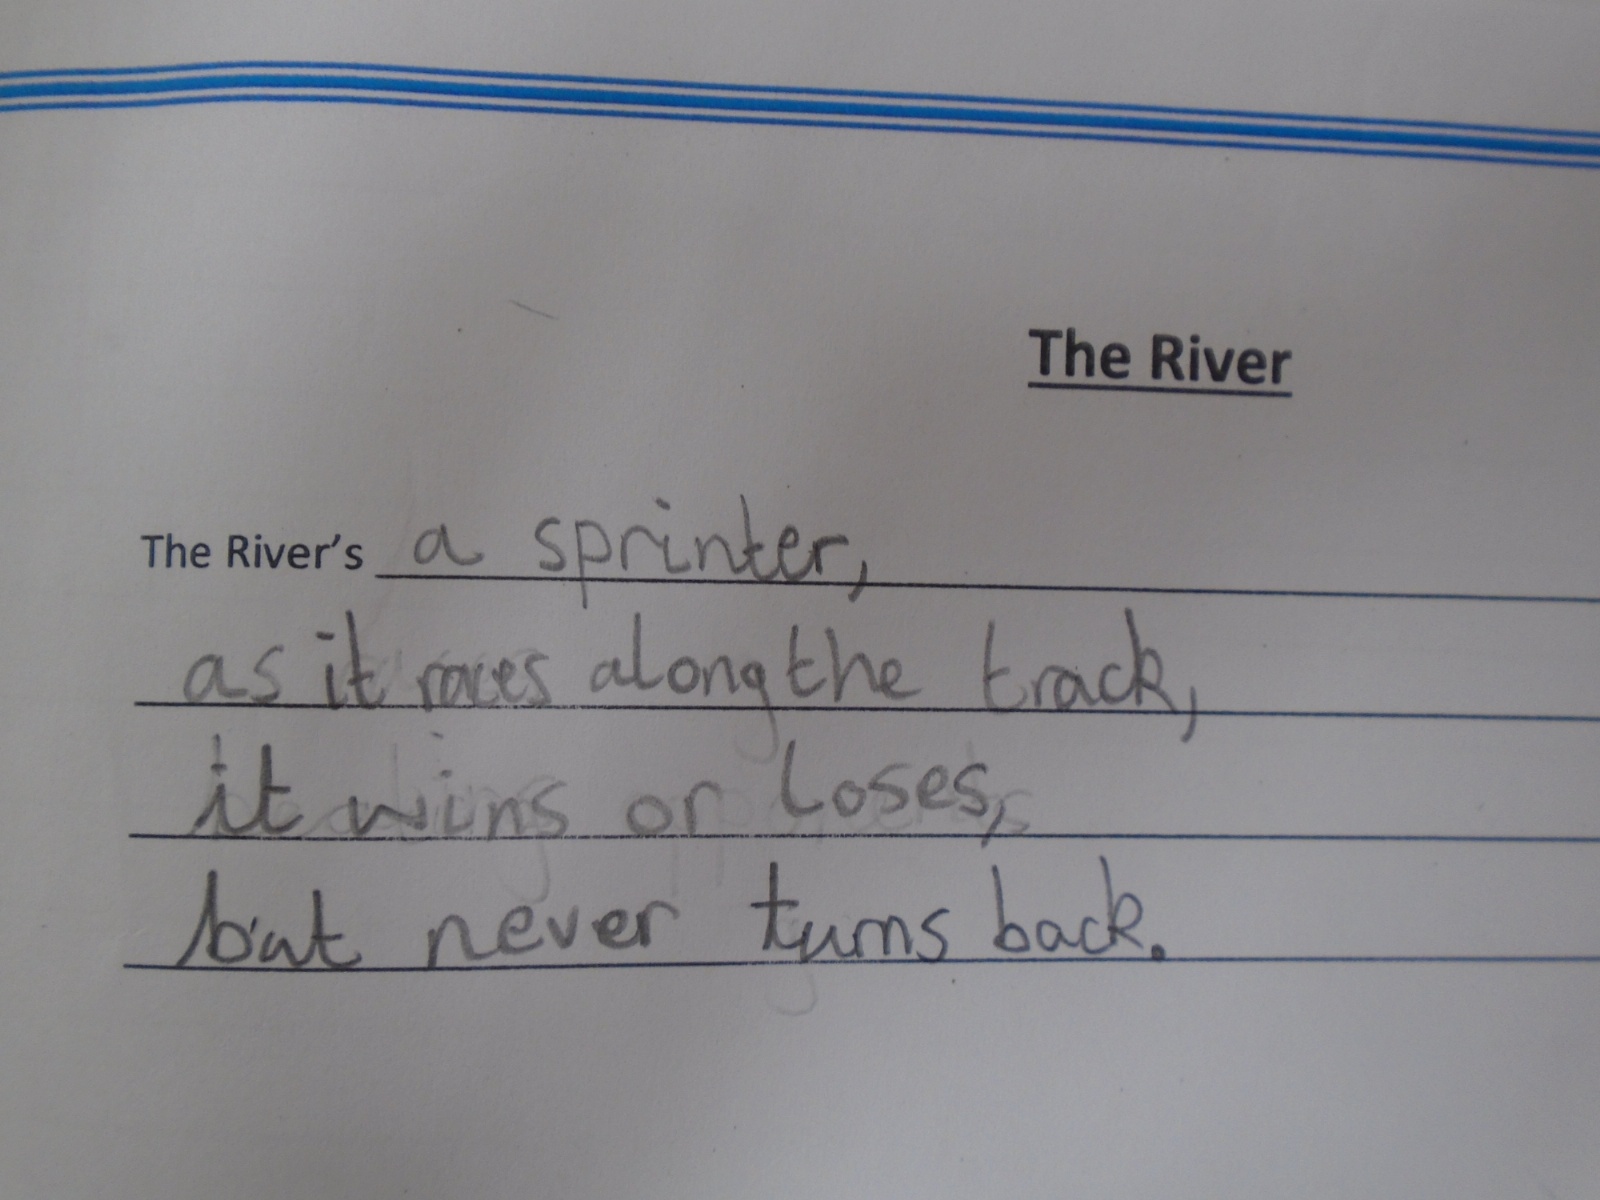 The River
The River's a sprinter,
as it races along the track,
it wins or loses,
but never turns back.